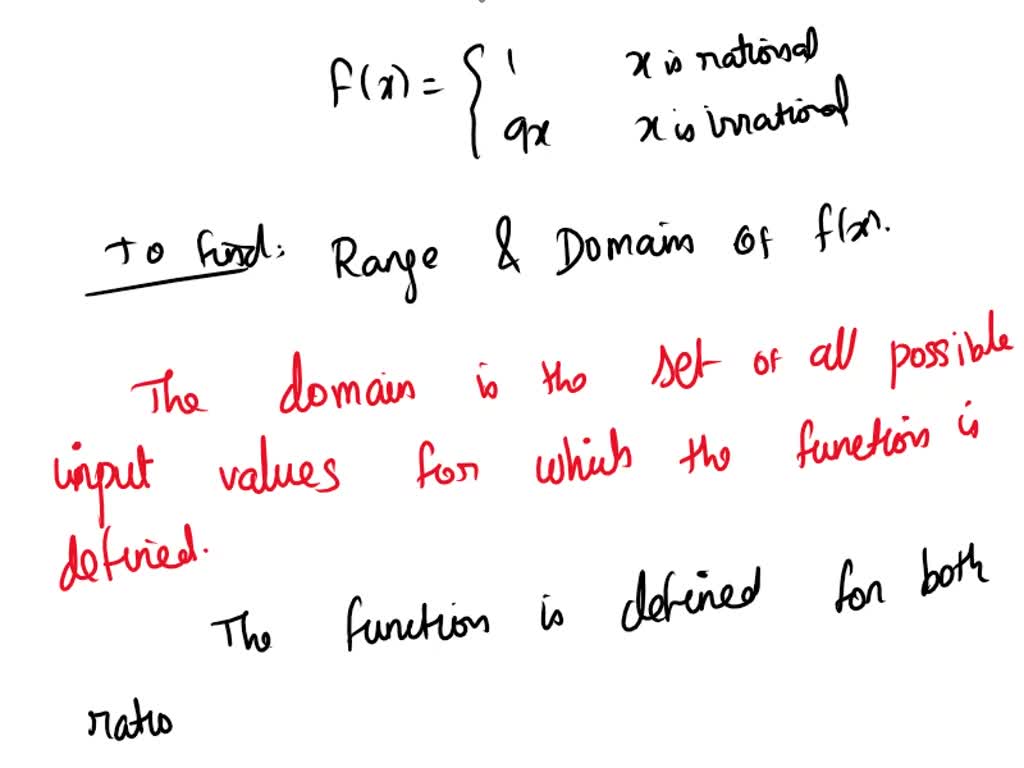 f(x) = { 1 x is rational
9x x is irrational
To find: Range & Domain of f(x).
The domain is the set of all possible
input values for which the function is
defined.
The function is defined for both
ratio